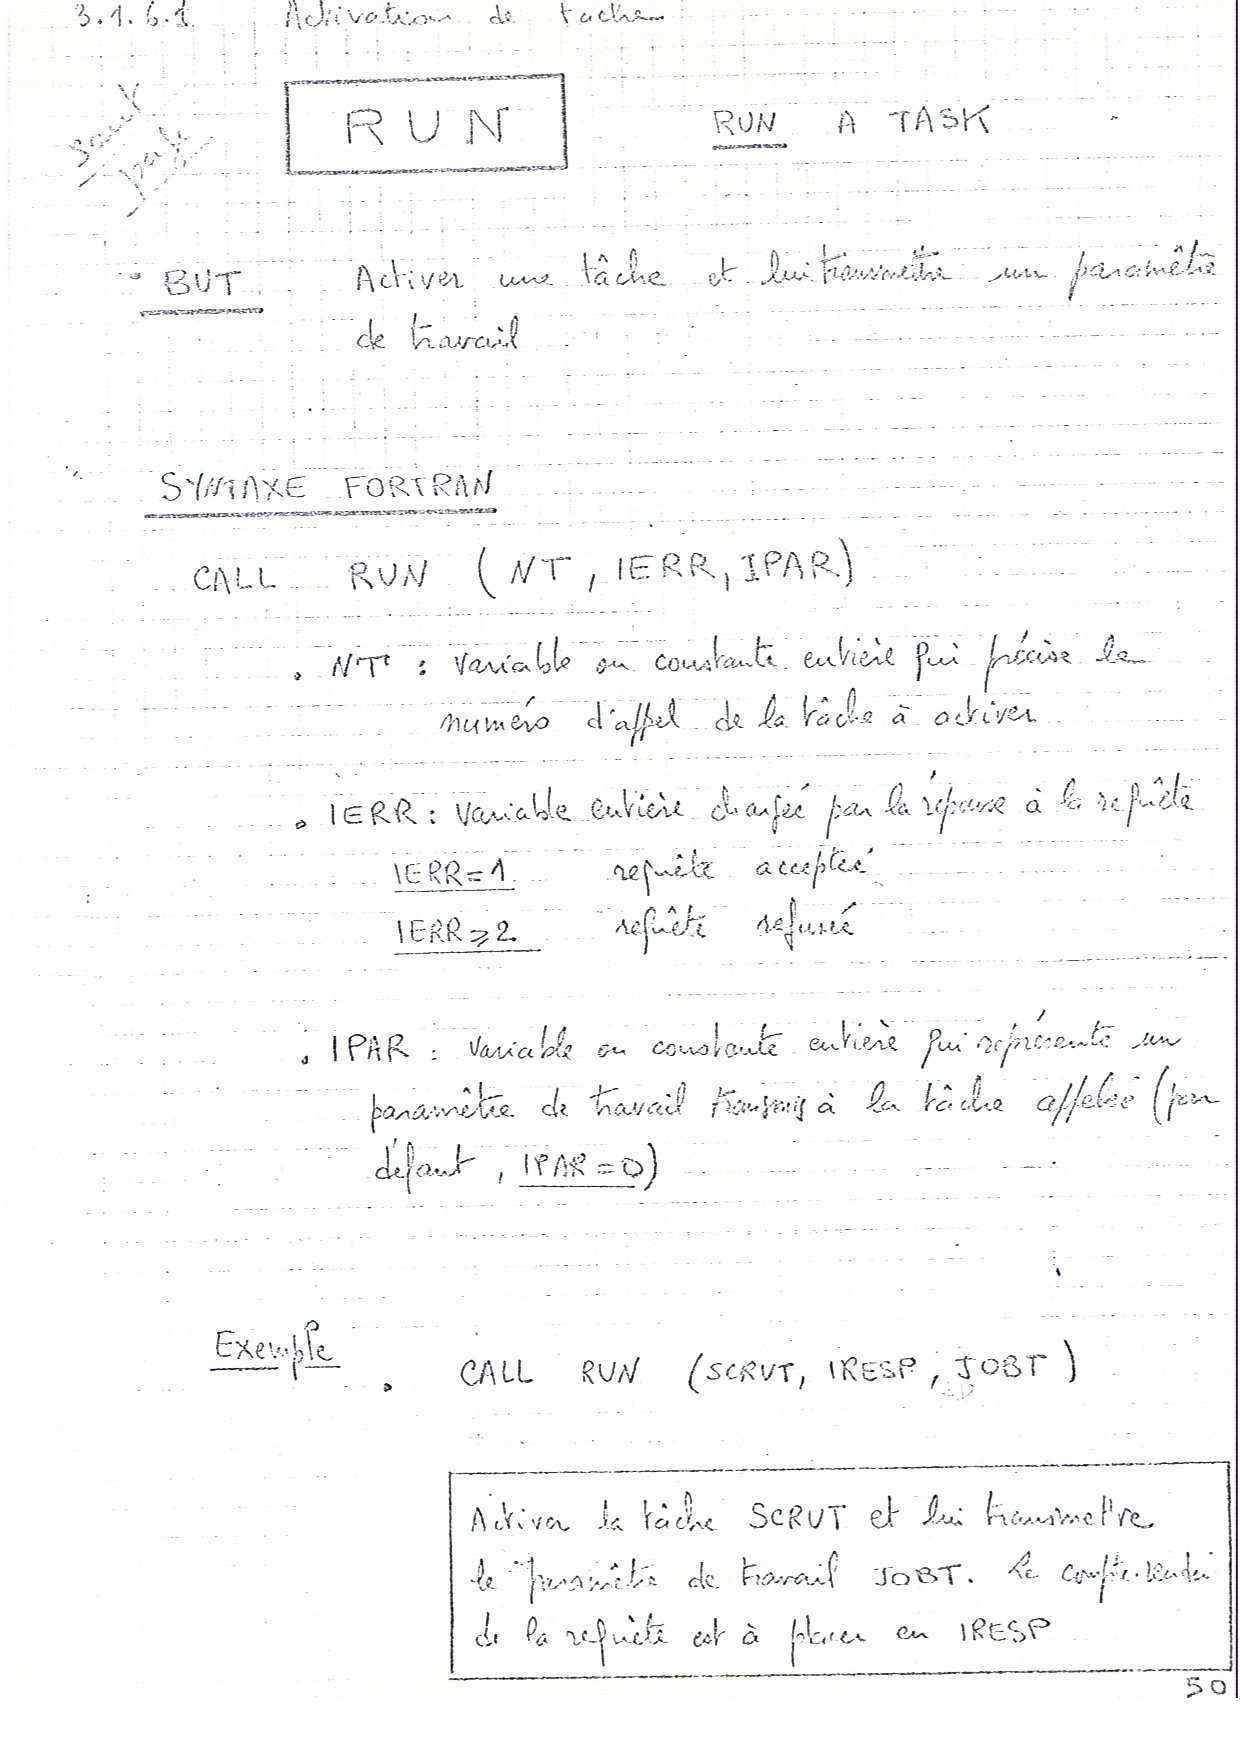 3.1.6.1 Activation de taches
Saut
page
RUN RUN A TASK
BUT Activer une tâche et lui transmettre un paramètre
de travail
SYNTAXE FORTRAN
CALL RUN (NT, IERR, IPAR)
. NT : Variable ou constante entière qui précise le
numéro d'appel de la tâche à activer
. IERR : Variable entière chargée par la réponse à la requête
IERR=1 requête acceptée
IERR⩾2 requête refusée
. IPAR : Variable ou constante entière qui représente un
paramètre de travail transmis à la tâche appelée (par
défaut, IPAR=0)
Exemple
. CALL RUN (SCRUT, IRESP, JOBT)
Activer la tâche SCRUT et lui transmettre
le paramètre de travail JOBT. Le compte-rendu
de la requête est à placer en IRESP
50